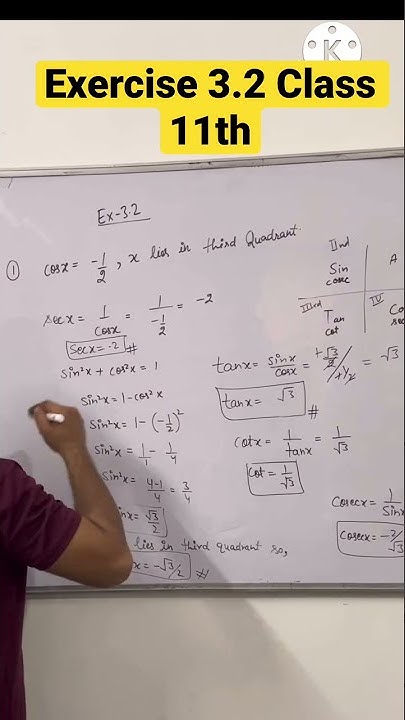 K
Exercise 3.2 Class
11th
Ex-3.2
① cosx = -1/2, x lies in third Quadrant.
secx = 1/cosx = 1/(-1/2) = -2
secx = -2 #
sin²x + cos²x = 1
sin²x = 1 - cos²x
sin²x = 1 - (-1/2)²
sin²x = 1/1 - 1/4
sin²x = 4-1/4 = 3/4
inx = √3/2
lies in third quadrant so,
x = -√3/2 #
tanx = sinx/cosx = +√3/2/+1/2 = √3
tanx = √3 #
cotx = 1/tanx = 1/√3
cot = 1/√3
IInd
Sin
cosec
A
IIIrd
Tan
cot
IV
Co
sec
Cosecx = 1/Sinx
Cosecx = -2/√3